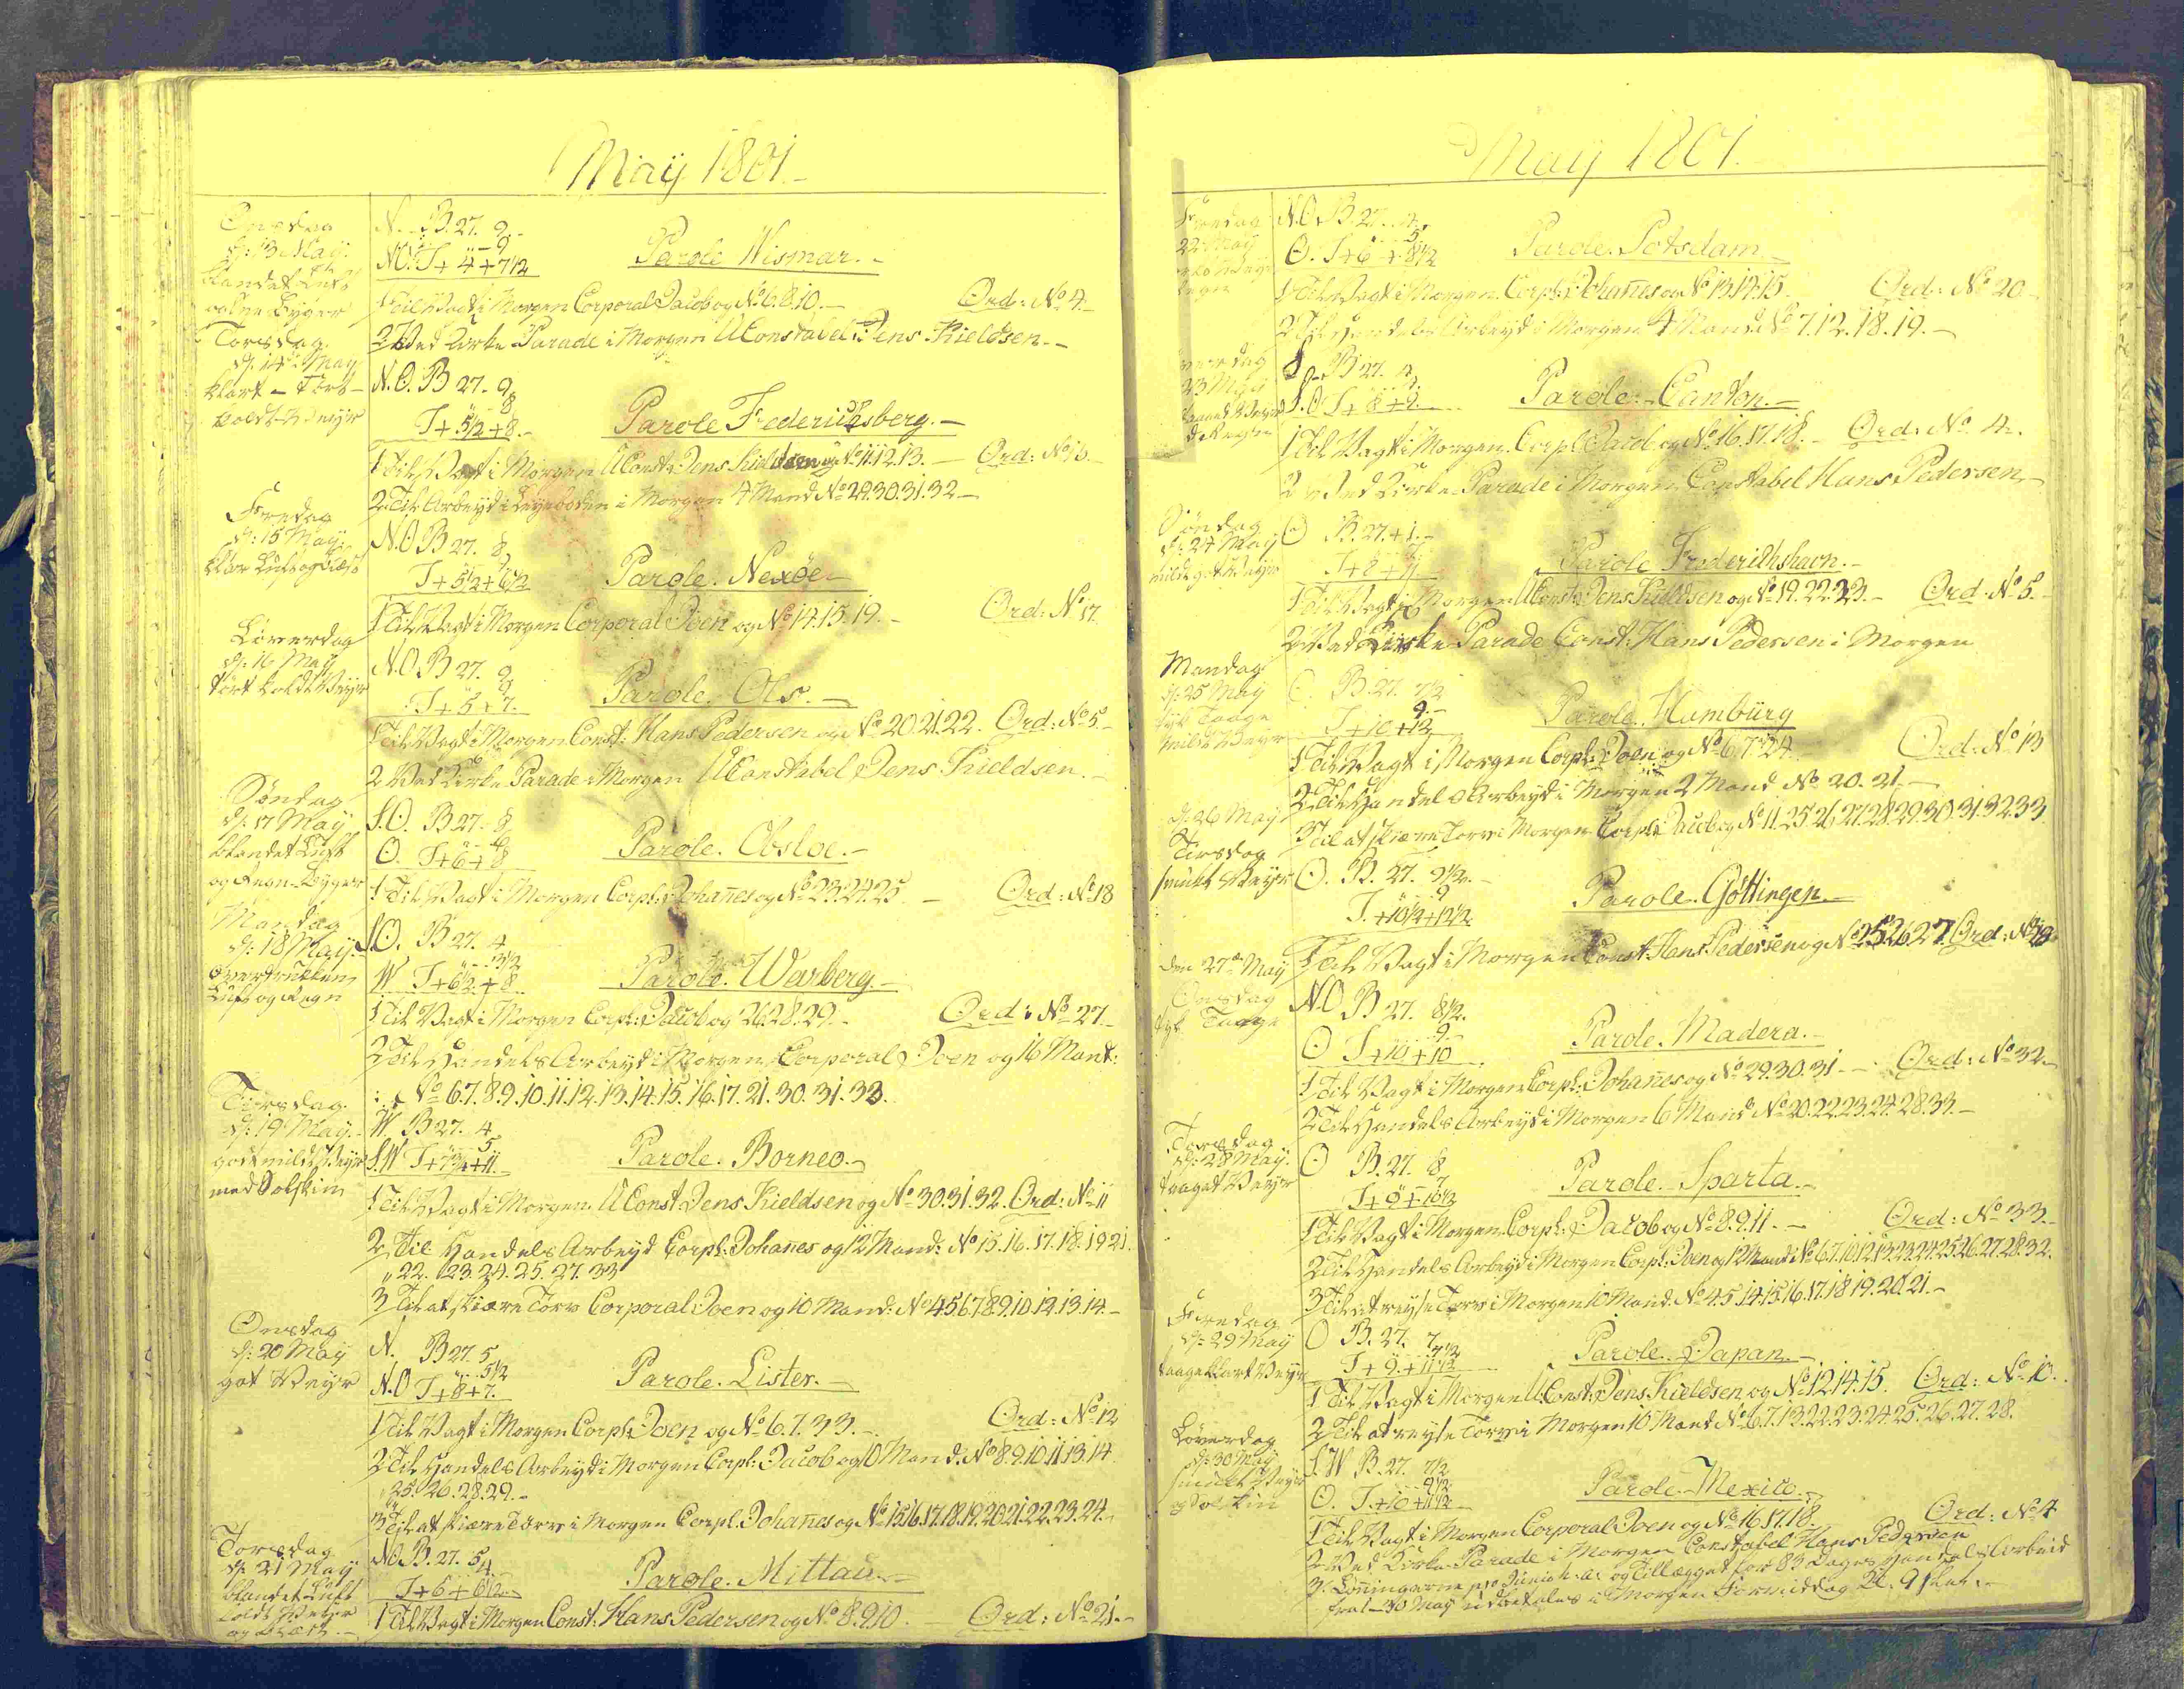 May 1801.
Onsdag
d: 13 May.
blandet Luft
og Sne Byger
N. B. 27. 9.
9
NO. T+ 4+7½
Parole Wismar.
1 Til Vagt i Morgen Corporal Jacob og No 6.8.10.
Ord: No 4.
2 Ved Kirke Parade i Morgen UConstabel Jens Kieldsen.
Torsdag.
d: 14 May
klart - tørt
koldt Veyr
N.O. B 27. 9
8
T+5½+8.
Parole Fredericksberg.
1 Til Vagt i Morgen UConst: Jens Kieldsen og No 11.12.13.
Ord: No 16.
2. Til Arbeyd i Leyeboden i Morgen 4 Mand No 29.30.31.32
Fredag
d: 15 May.
klar Luft og blæst
N.O B 27. 8
T+5½+6½
Parole. Nexöe
1 Til Vagt i Morgen Corporal Joen og No 14.15.19.
Ord: No 17.
Löverdag
d: 16 May
tört koldt Veyr
N.O. B 27. 9
T+5+7.
Parole. Ols.
1 Til Vagt i Morgen Const: Hans Pedersen og No 20.21.22. Ord: No 5
2 Ved Kirke Parade i Morgen UConstabel Jens Kieldsen.
Söndag
d: 17 May
blandet Luft
og Regn-Byger
S.O. B 27. 8
O. T+6+8
Parole. Obsloe.
1 Til Vagt i Morgen Corpl: Johanes og No 23.24.25.
Ord: No 18
Mandag
d: 18 May.
overtrukken
Luft og Regn
S.O. B 27. 4
3½
W T+6½+8
Parole. Warberg.
1 Til Vagt i Morgen Corpl: Jacob og 26.28.29.
Ord: No 27
2 Til Handels Arbeyd i Morgen, Corporal Joen og 16 Mand:
No 6.7.8.9.10.11.12.13.14.15.16.17.21.30.31.33.
Tirsdag.
d: 19 May.
godt mildt Veyr
med Solskin
W B 27. 4
5
S.W T+7¾+11.
Parole. Borneo.
1 Til Vagt i Morgen. UConst: Jens Kieldsen og No 30.31.32. Ord: No 11
2, Til Handels Arbeyd Corpl: Johanes og 12 Mand: No 15.16.17.18.19.21.
22. 23.24.25.27.33
3 Til at skiære Torv Corporal Joen og 10 Mand: No 4.5.6.7.8.9.10.12.13.14.
Onsdag
d: 20 May
got Veyr
N. B 27. 5
5½
N.O T+8+7.
Parole. Lister.
1 Til Vagt i Morgen Corpl: Joen og No 6.7.33.
Ord: No 12
2 Til Handels Arbeyd i Morgen Corpl: Jacob og 10 Mand: No 8.9.10.11.13.14.
25.26.28.29.
3 Til at skiære Torv i Morgen Corpl. Johanes og No 15.16.17.18.19.20.21.22.23.24.
Torsdag
d: 21 May
blandet Luft
koldt Veyr
og blæst.
N.O. B. 27. 5
4
T+6+6½
Parole. Mittau.
1 Til Vagt i Morgen Const: Hans Pedersen og No 8.9.10.
Ord: No 21.
May 1801.
Fredag
22 May
N.O. B. 27. 4.
5
O. T+6+8½
Parole. Potsdam.
1 Til Vagt i Morgen Corpl: Johanes og No 13.14.15
Ord: No 20
2 Til Handels Arbeyd i Morgen 4 Mand No 7.12.18.19.
23 May
S. B 27. 4.
S.O T+8+9.
Parole. Canton.
1 Til Vagt i Morgen. Corpl: Jacob og No 16.17.18.
Ord: No. 4.
2 Ved Kirke Parade i Morgen Constabel Hans Pedersen
Söndag
d: 24 May
mildt got Veyr
O B. 27.
T+8+11
Parole Frederikshavn.
1 Til Vagt i Morgen UConst: Jens Kieldsen og No 19.22.23.
Ord: No 5.
2 Ved Kirke Parade Const: Hans Pedersen i Morgen
Mandag
d: 25 May
tyk Taage
mildt Veyr
O. B. 27. 7½
9.
T+10+12
Parole. Hamburg
1 Til Vagt i Morgen Corpl: Joen og No 6.7.24
Ord: No 13
2 Til Handels Arbeyd i Morgen 2 Mand No 20.21.
3 Til at skiære Torv i Morgen Corpl: Jacob og No 11.25.26.27.28.29.30.31.32.33
d: 26 May
Tirsdag
smukt Veyr
O. B. 27. 9½.
9
T.+10½+12½
Parole. Göttingen.
1 Til Vagt i Morgen Const: Hans Pedersen og No 25.26.27. Ord: No
den 27de May
Onsdag
tyk Taage
N.O B 27. 8½.
9.
O T+10+10
Parole. Madera.
1 Til Vagt i Morgen Corpl: Johanes og No 29.30.31.
Ord: No 32
2 Til Handels Arbeyd i Morgen 6 Mand No 20.22.23.24.28.33.
Torsdag
d: 28 May.
taaget Veyr
O B. 27. 8
7
T+9+10½
Parole. Sparta.
1 Til Vagt i Morgen Corpl: Jacob og No 8.9.11.
Ord: No 33.
2 Til Handels Arbeyd i Morgen Corpl: Joen og 12 Mand: No 6.7.10.12.13.23.24.25.26.27.28.32.
3 Til at reyse Torv i Morgen 10 Mand. No 4.5.14.15.16.17.18.19.20.21.
Fredag
d: 29 May
taage klart Veyr
O B. 27. 7
7½
T+9.+11½
Parole. Japan.
1 Til Vagt i Morgen UConst: Jens Kieldsen og No 12.14.15.
Ord: No 10.
2 Til at reyse Torv i Morgen 10 Mand No 6.7.13.22.23.24.25.26.27.28.
Löverdag
d: 30 May
smukt Veyr
og Solskin
S.W B. 27. 7½
9½
O. T.+10+11½
Parole. Mexico.
1 Til Vagt i Morgen Corporal Joen og No 16.17.18.
Ord: No 4
2 Ved Kirke Parade i Morgen Constabel Hans Pedersen
3. Löningerne pro Junii og Tillægget for 83 Dages Handels Arbeid
30 May udbetales i Morgen Formiddag Kl. 9 Slet.